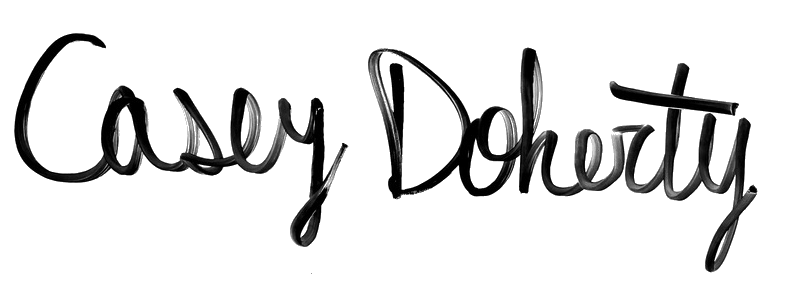 Casey Doherty